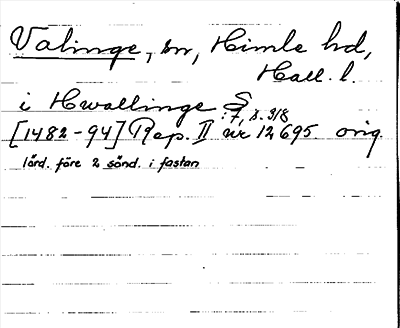 Valinge, sn, Himle hd,
Hall. l.
i Hwallinge
[1482-94] Rep. II nr 12695 orig.
lörd. före 2 sönd. i fastan